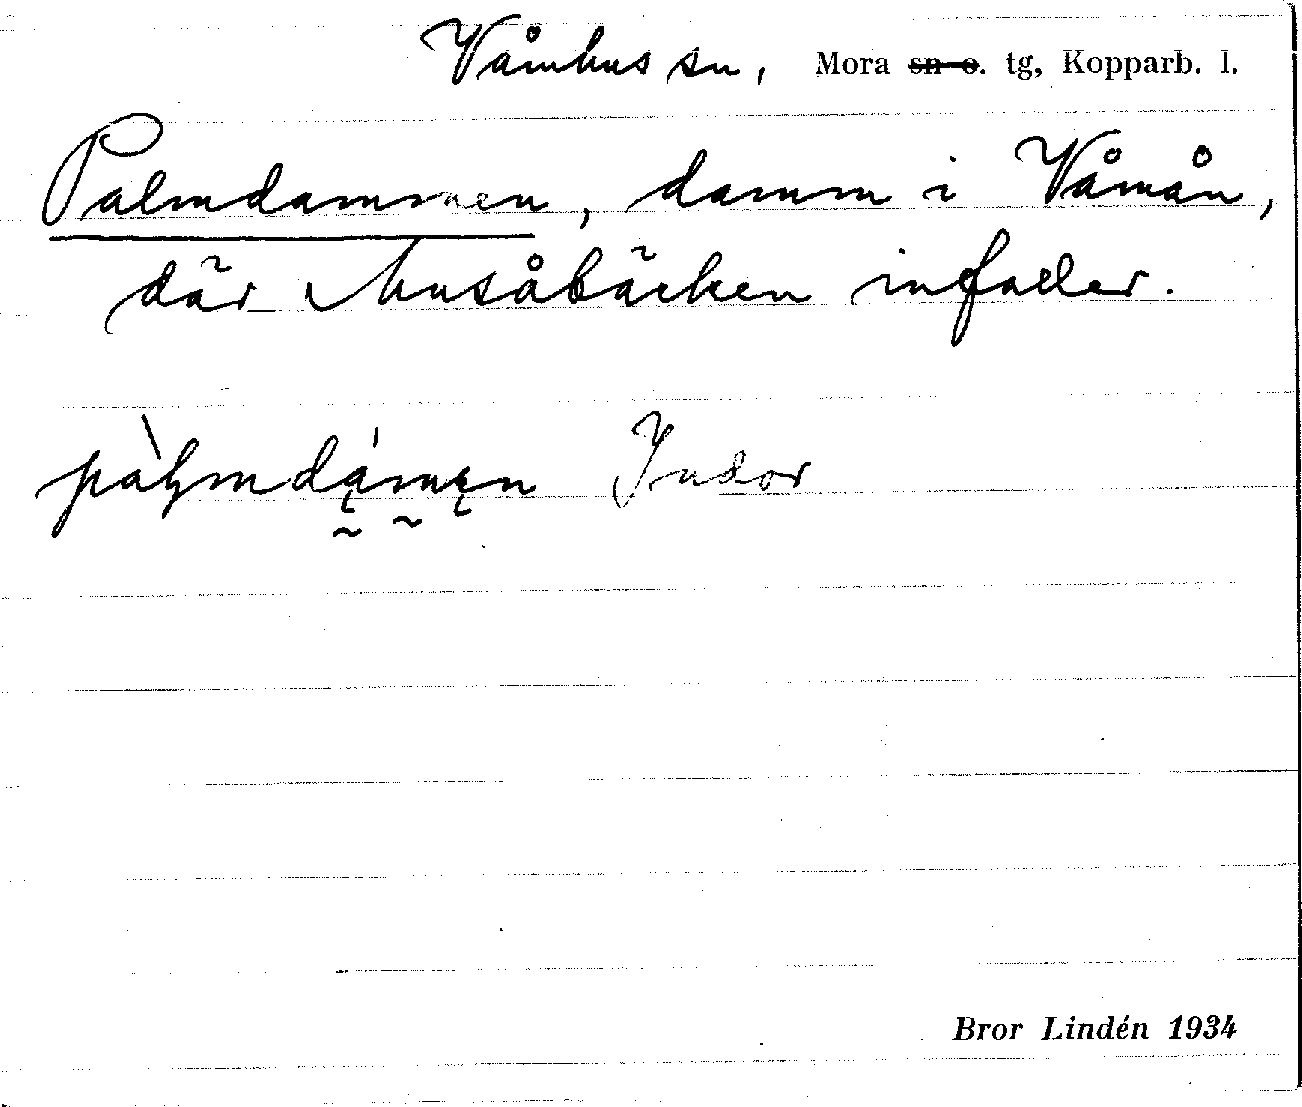 Våmhus sn, Mora sn o. tg, Kopparb. l.
Palmdammen, damm i Våmån,
där Musåbäcken infaller.
Indor
Bror Lindén 1934